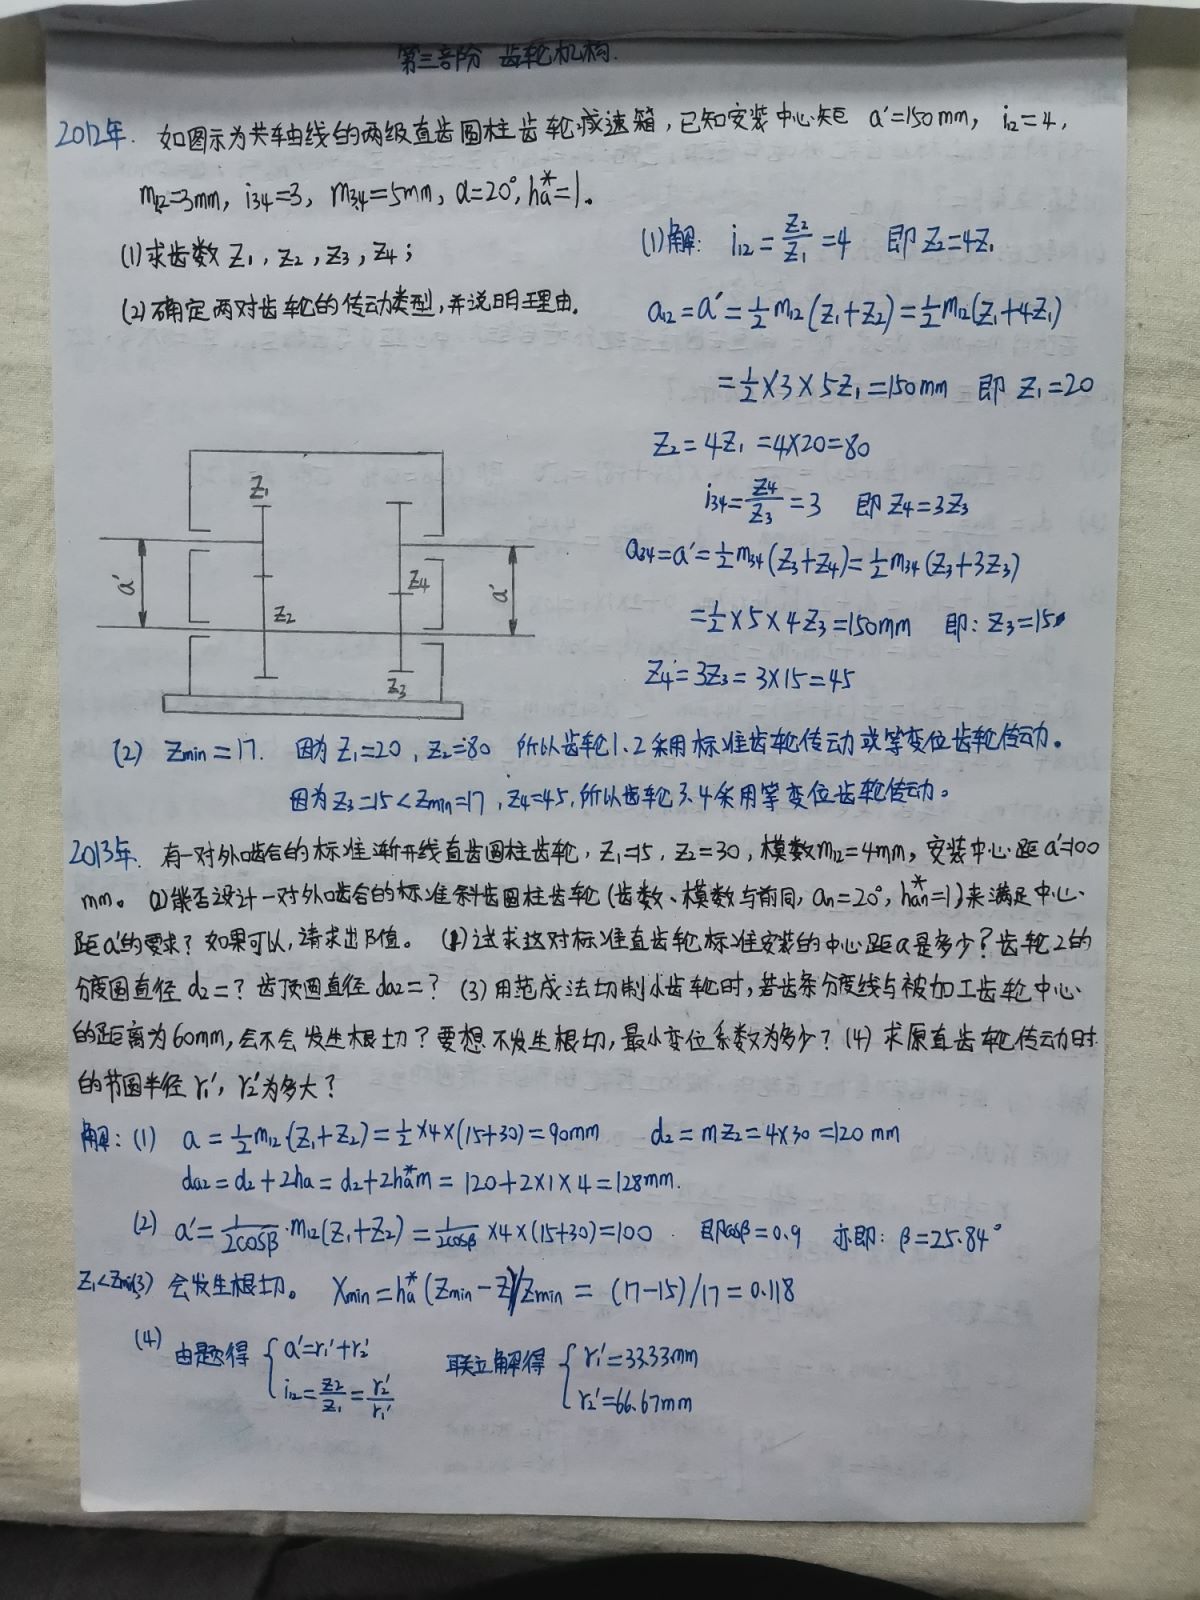 第三部阶 齿轮机构.
2012年. 如图示为共轴线的两级直齿圆柱齿轮减速箱,已知安装中心矩 a'=150mm, i₁₂=4,
m₁₂=3mm, i₃₄=3, m₃₄=5mm, α=20°, hₐ*=1。
(1)求齿数 Z₁, Z₂, Z₃, Z₄;
(2)确定两对齿轮的传动类型,并说明理由.
(1)解: i₁₂=Z₂/Z₁=4 即 Z₂=4Z₁
a₁₂=a'=½m₁₂(Z₁+Z₂)=½m₁₂(Z₁+4Z₁)
=½×3×5Z₁=150mm 即 Z₁=20
Z₂=4Z₁=4×20=80
i₃₄=Z₄/Z₃=3 即 Z₄=3Z₃
a₃₄=a'=½m₃₄(Z₃+Z₄)=½m₃₄(Z₃+3Z₃)
=½×5×4Z₃=150mm 即: Z₃=15
Z₄=3Z₃=3×15=45
Z₁
a'
Z₂
Z₄
a'
Z₃
(2) Zmin=17. 因为Z₁=20, Z₂=80 所以齿轮1、2采用标准齿轮传动或等变位齿轮传动。
因为Z₃=15<Zmin=17, Z₄=45,所以齿轮3、4采用等变位齿轮传动。
2013年. 有一对外啮合的标准渐开线直齿圆柱齿轮, Z₁=15, Z₂=30, 模数m₁₂=4mm, 安装中心距a'=100
mm。(2)能否设计一对外啮合的标准斜齿圆柱齿轮(齿数、模数与前同, αn=20°, han*=1)来满足中心
距a'的要求?如果可以,请求出β值。(1)试求这对标准直齿轮标准安装的中心距a是多少?齿轮2的
分度圆直径 d₂=? 齿顶圆直径 da₂=? (3)用范成法切制小齿轮时,若齿条分度线与被加工齿轮中心
的距离为60mm,会不会发生根切?要想不发生根切,最小变位系数为多少?(4)求原直齿轮传动时
的节圆半径 r₁', r₂'为多大?
解:(1) a=½m₁₂(Z₁+Z₂)=½×4×(15+30)=90mm d₂=mZ₂=4×30=120mm
da₂=d₂+2ha=d₂+2hₐ*m=120+2×1×4=128mm.
(2) a'=1/2cosβ·m₁₂(Z₁+Z₂)=1/2cosβ×4×(15+30)=100. 即cosβ=0.9 亦即: β=25.84°
Z₁<Zmin(3) 会发生根切。 Xmin=hₐ*(Zmin-Z)/Zmin=(17-15)/17=0.118
(4) 由题得 { a'=r₁'+r₂' 联立解得 { r₁'=33.33mm
i₁₂=Z₂/Z₁=r₂'/r₁' r₂'=66.67mm